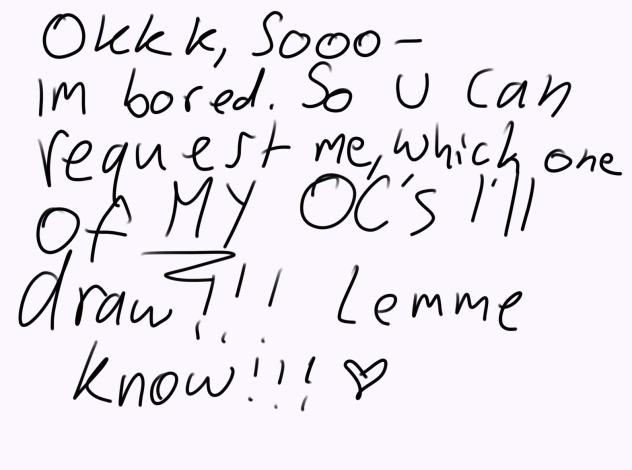 Okkk, Sooo-
im bored. So U can
request me, which one
of MY OC's I'll
draw?!! Lemme
know!!! ♡